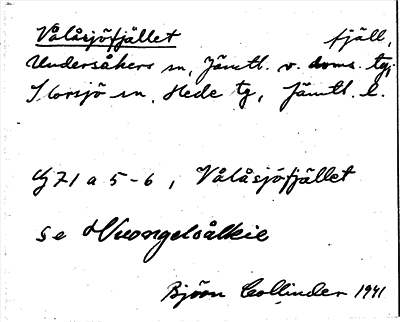 Vålåsjöfjället fjäll,
Undersåkers sn, Jämtl. v. doms. tg;
Storsjö sn, Hede tg, Jämtl. l.
71 a 5-6, Vålåsjöfjället
se
Björn Collinder 1941